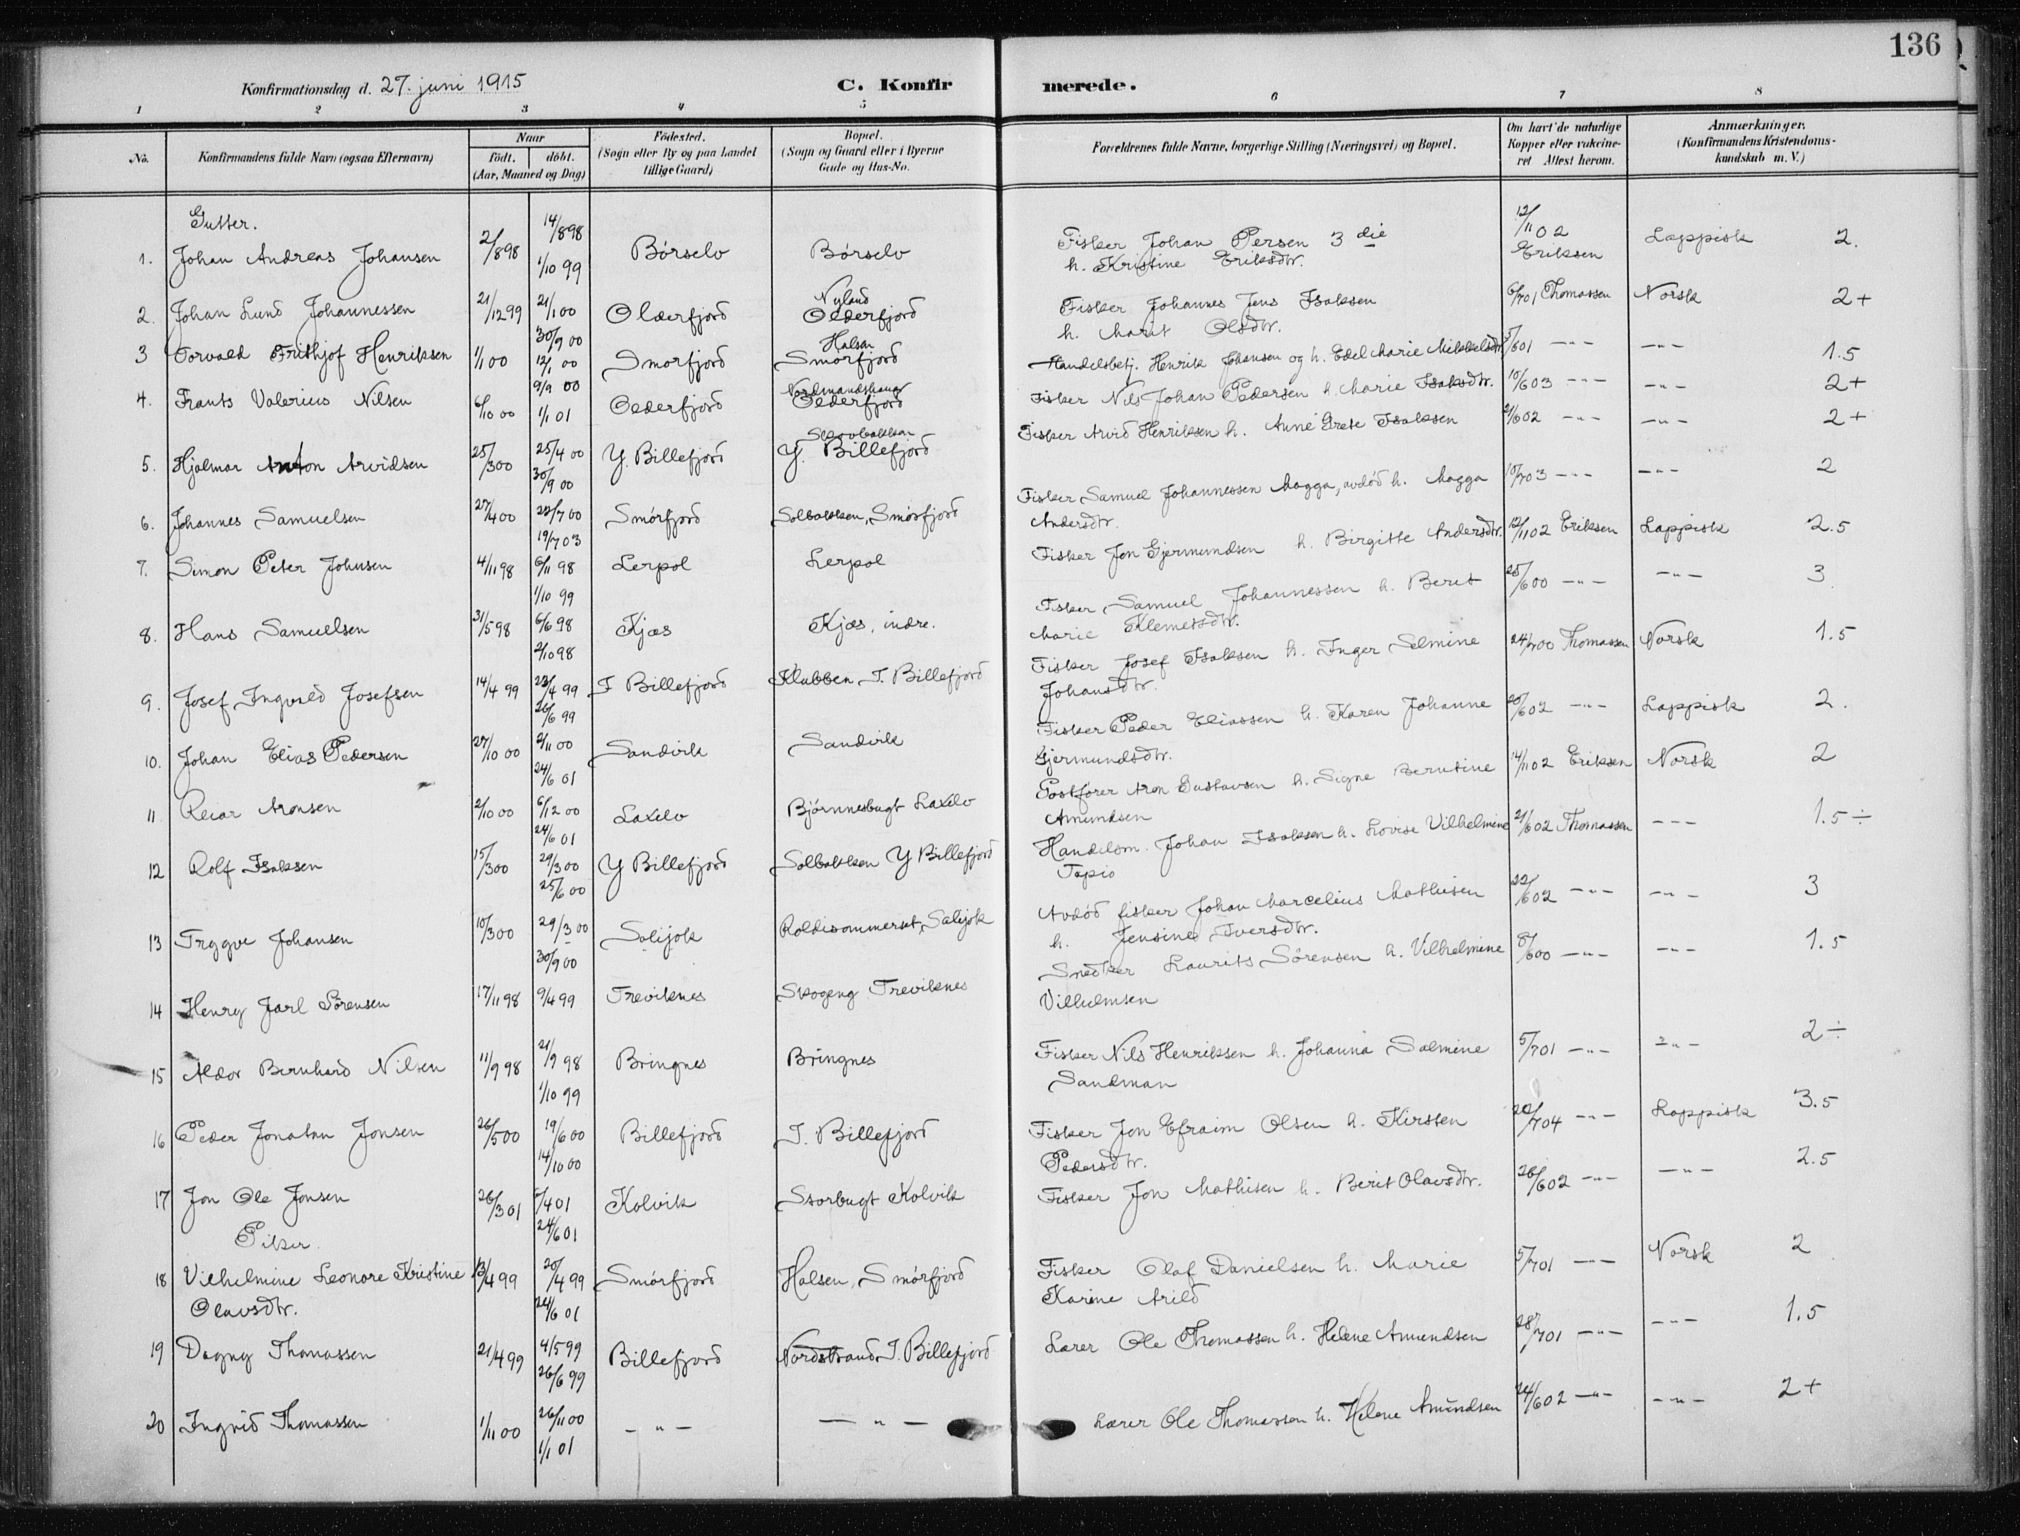 136
Konfirmationsdag d. 27. juni 1915 C. Konfirmerede.
1 2 3 4 5 6 7 8
No. Konfirmandens fulde Navn (ogsaa Efternavn) Naar født. døbt. (Aar, Maaned og Dag) Fødested. (Sogn eller By og paa Landet tillige Gaard) Bopæl. (Sogn og Gaard eller i Byerne Gade og Hus-No. Forældrenes fulde Navne, borgerlige Stilling (Næringsvei) og Bopæl. Om havt de naturlige Kopper eller vakcineret Attest herom. Anmærkninger. (Konfirmandens Kristendomskundskab m. V.)
Gutter.
1. Johan Andreas Johansen 2/8 98 14/8 98 1/10 99 Børselv Børselv Fisker Johan Persen 3die h. Kristine Eriksdtr. 12/11 02 Eriksen Lappisk 2.
2. Johan Lund Johannessen 21/12 99 21/1 00 30/9 00 Olderfjord Nyland Olderfjord Fisker Johannes Jens Isaksen h. Marit Olsdtr. 6/7 01 Thomassen Norsk 2+
3 Torvald Frithjof Henriksen 1/1 00 12/1 00 9/9 00 Smorfjord Halsen Smørfjord Handelsbetj. Henrik Johansen og h. Edel Marie Mikkelsdtr. 5/6 01 -"- -"- 1.5
4. Frants Valerius Nilsen 6/10 00 1/1 01 Olderfjord Nordmandshaug Olderfjord Fisker Nils Johan Pedersen h. Marie Isaksdtr. 10/6 03 -"- -"- 2+
5. Hjalmar Anton Arvidsen 25/3 00 25/4 00 30/9 00 Y. Billefjord Y. Billefjord Fisker Arvid Henriksen h. Anne Grete Isaksen 21/6 02 -"- -"- 2+
6. Johannes Samuelsen 27/4 00 22/7 00 19/7 03 Smørfjord Solbakken, Smørfjord Fisker Samuel Johannessen Magga, avdød h. Magga Andersdtr. 10/7 03 -"- -"- 2
7. Simon Peter Johnsen 4/11 98 6/11 98 1/10 99 Lerpol Lerpol Fisker Jon Gjermundsen h. Birgitte Andersdtr. 12/11 02 Eriksen Lappisk 2.5
8. Hans Samuelsen 31/5 98 6/6 98 2/10 98 Kjæs Kjæs, indre. Fisker Samuel Johannessen h. Berit Marie Klemetsdtr. 25/6 00 -"- -"- 3
9. Josef Ingvald Josefsen 14/4 99 23/4 99 26/6 99 I Billefjord Klubben, I. Billefjord Fisker Josef Isaksen h. Inger Selmine Johansdtr. 24/7 00 Thomassen Norsk 1.5
10. Johan Elias Pedersen 27/10 00 2/11 00 24/6 01 Sandvik Sandvik Fisker Peder Eliassen h. Karen Johanne Gjermundsdtr. 20/6 02 -"- Lappisk 2.
11 Reiar Aronsen 2/10 00 6/12 00 24/6 01 Laxelv Bjørnnesbugt Laxelv Postfører Aron Gustavsen h. Signe Berntine Amundsen 14/11 02 Eriksen Norsk 2
12 Rolf Isaksen 15/3 00 29/3 00 25/6 00 Y Billefjord Solbakken Y Billefjord Handelsm. Johan Isaksen h. Lovise Vilhelmine Tapio 21/6 02 Thomassen -"- 1.5÷
13 Trygve Johansen 10/3 00 29/3 00 30/9 00 Salijok Salijok Avdød fisker Johan Marcelius Mathisen h. Jensine Iversdtr. 22/6 02 -"- -"- 3
14 Henry Jarl Sørensen 17/11 98 9/4 99 Treviknes Skogeng Treviknes Snedker Laurits Sørensen h. Vilhelmine Vilhelmsen 8/6 00 -"- -"- 1.5
15 Aldor Bernhard Nilsen 11/9 98 21/9 98 1/10 99 Bringnes Bringnes Fisker Nils Henriksen h. Johanna Salmine Sandman 5/7 01 -"- -"- 2÷
16 Peder Jonatan Jonsen 26/5 00 19/6 00 14/10 00 Billefjord I. Billefjord Fisker Jon Efraim Olsen h. Kirsten Pedersdtr. 20/7 04 -"- Lappisk 3.5
17 Jon Ole Jonsen 26/3 01 5/4 01 24/6 01 Kolvik Storbugt Kolvik Fisker Jon Mathisen h. Berit Olavsdtr. 26/6 02 -"- -"- 2.5
Piker.
18 Vilhelmine Leonore Kristine Olavsdtr. 13/4 99 20/4 99 24/6 01 Smørfjord Halsen, Smørfjord Fisker Olaf Danielsen h. Marie Karine Arild 5/7 01 -"- Norsk 2
19 Dagny Thomassen 21/4 99 4/5 99 26/6 99 Billefjord Nordstrand I. Billefjord Lærer Ole Thomassen h. Helene Amundsen 28/7 01 -"- -"- 1.5
20 Ingrid Thomassen 1/11 00 26/11 00 1/1 01 -"- -"- Lærer Ole Thomassen h. Helene Amundsen 24/6 02 -"- -"- 2+